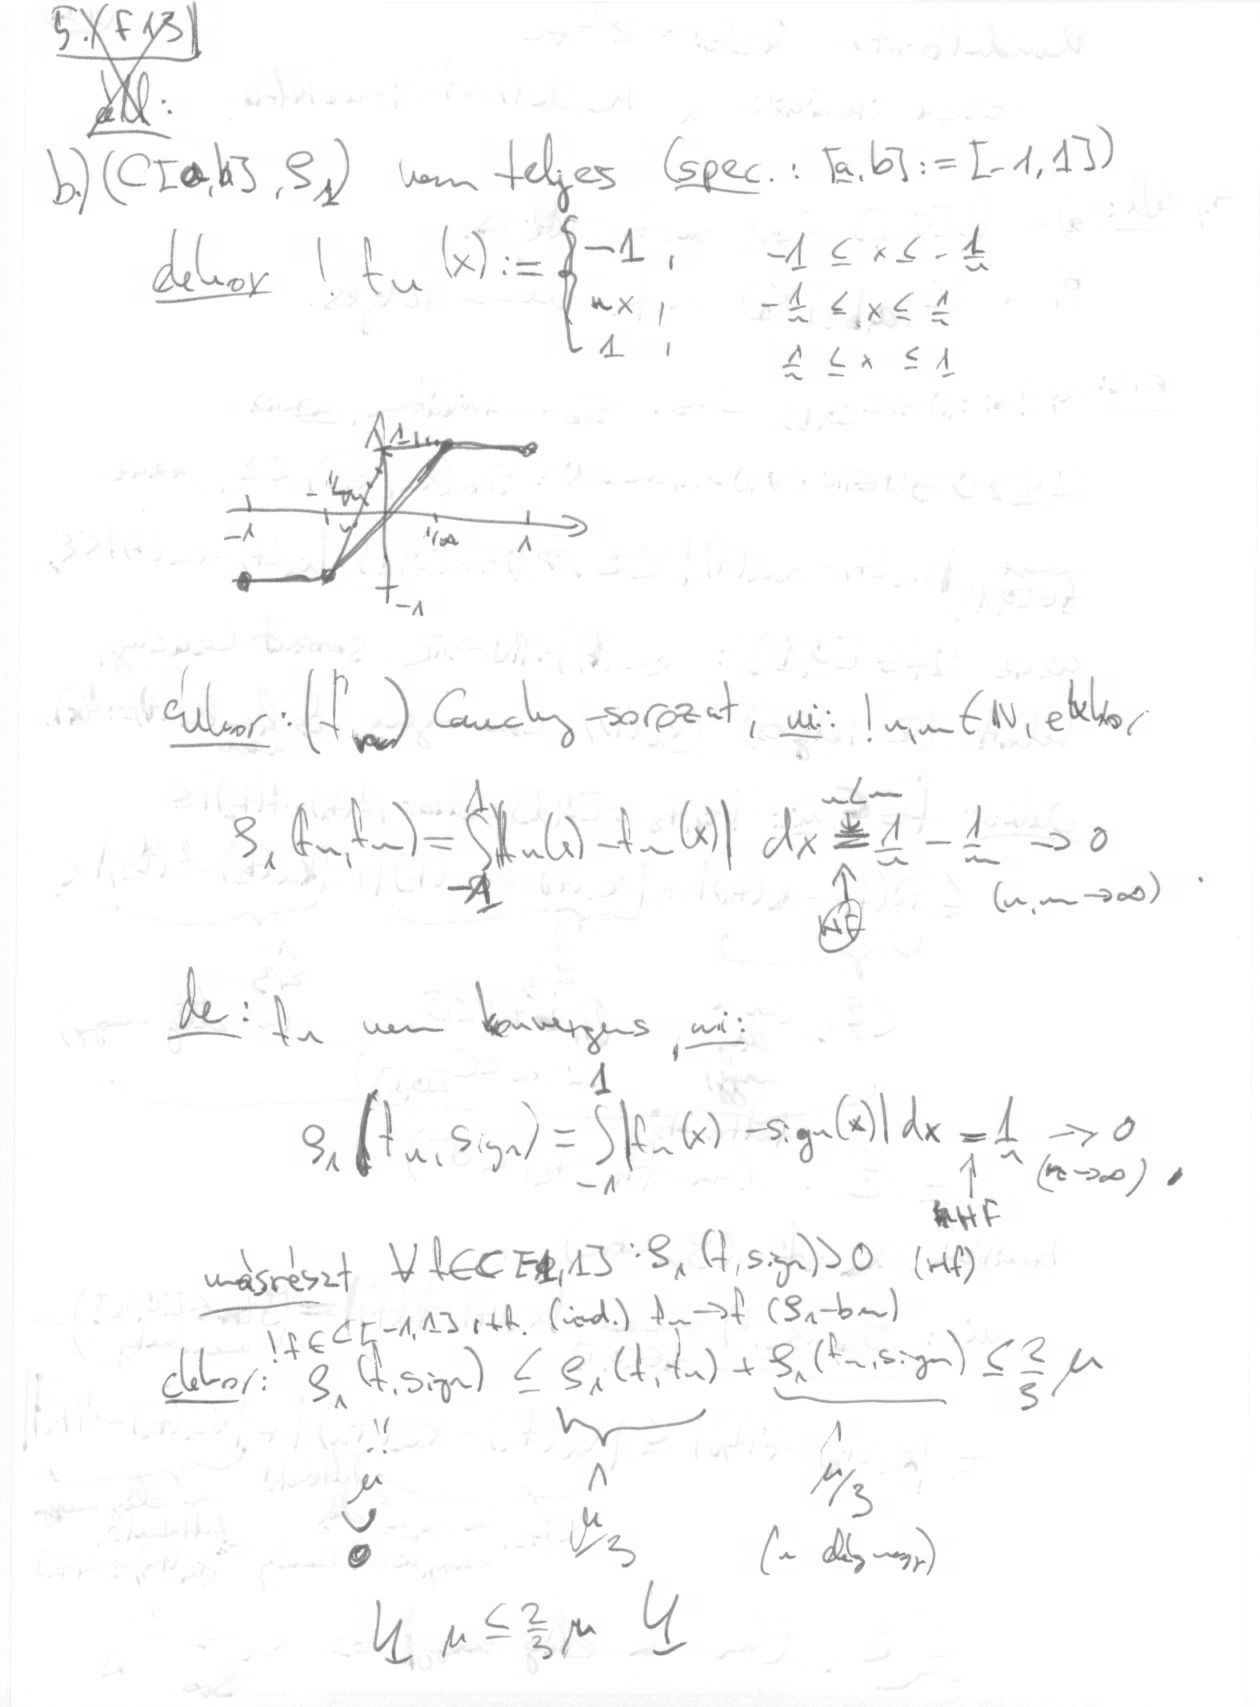 5. (F13)
áll:
b.) (C[a,b], ϱ₁) nem teljes (spec. : [a,b] := [-1,1])
dehox ! fₙ(x) := { -1 , -1 ≤ x ≤ -1/n
nx , -1/n ≤ x ≤ 1/n
1 , 1/n ≤ x ≤ 1
1
-1 -1/n 1/n 1
-1
ekkor: (fₙ) Cauchy-sorozat, ui: ! n,m ∈ N, ekkor
ϱ₁(fₙ,fₘ) = ∫₋₁¹ |fₙ(x) - fₘ(x)| dx = 1/n - 1/m → 0
n<m
HF
(n,m→∞)
de: fₙ nem konvergens, ui:
ϱ₁(fₙ, sign) = ∫₋₁¹ |fₙ(x) - sign(x)| dx = 1/n → 0
(n→∞).
HF
másrészt ∀ f∈C[-1,1] : ϱ₁(f, sign) > 0 (HF)
! f ∈ C[-1,1], hf. (ind.) fₙ → f (ϱ₁-ben)
ekkor: ϱ₁(f, sign) ≤ ϱ₁(f, fₙ) + ϱ₁(fₙ, sign) ≤ 2/3 μ
=: μ > 0
< μ/3
< μ/3
(n elég nagy)
↯ μ ≤ 2/3 μ ↯